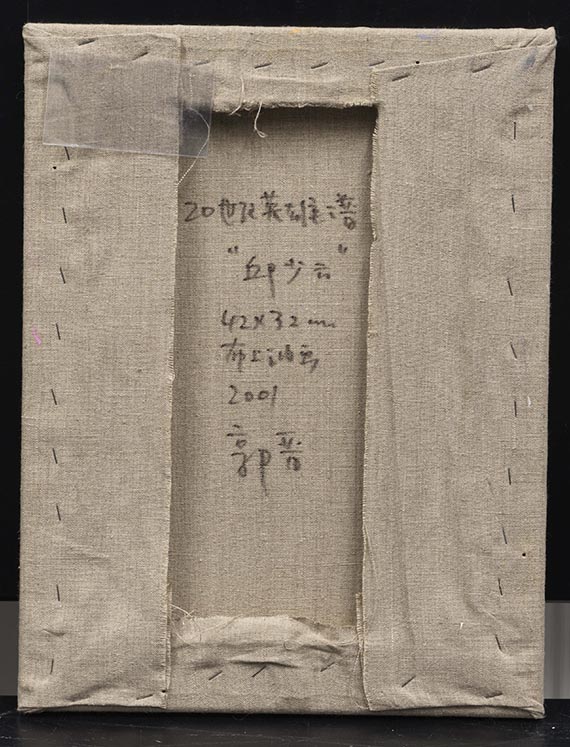 20世纪英雄谱
"邱少云"
42×32cm
布上油画
2001
郭晋